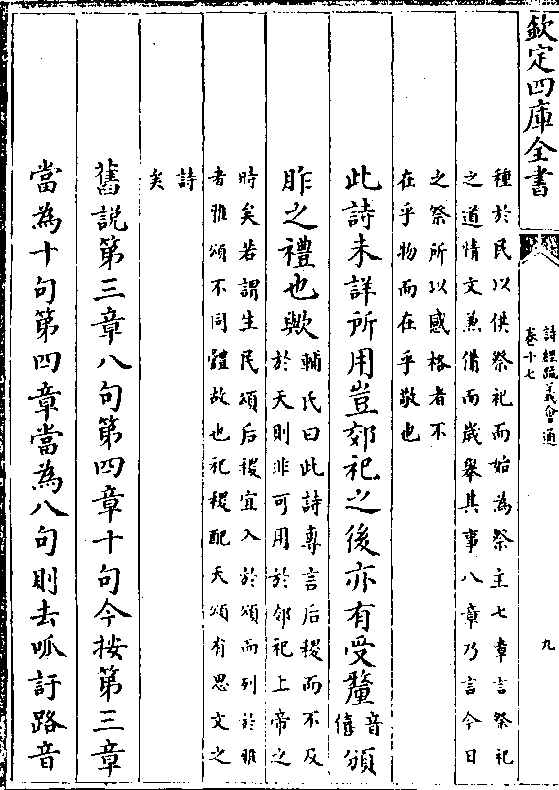 欽定四庫全書
詩經疏義會通
卷十七
九
種於民以供祭祀而始為祭主七章言祭祀
之道情文兼備而歲舉其事八章乃言今日
之祭所以感格者不
在乎物而在乎敬也
此詩未詳所用豈郊祀之後亦有受釐
音
僖
頒
胙之禮也歟
輔氏曰此詩專言后稷而不及
於天則非可用於郊祀上帝之
時矣若謂生民頌后稷宜入於頌而列於雅
者雅頌不同體故也祀稷配天頌有思文之
詩
矣
舊說第三章八句第四章十句今按第三章
當為十句第四章當為八句則去呱訏路音